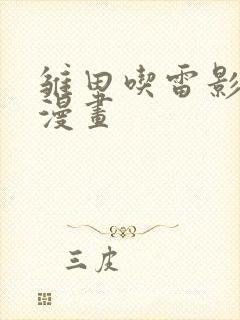 雏田喫雷影
漫畫
三皮